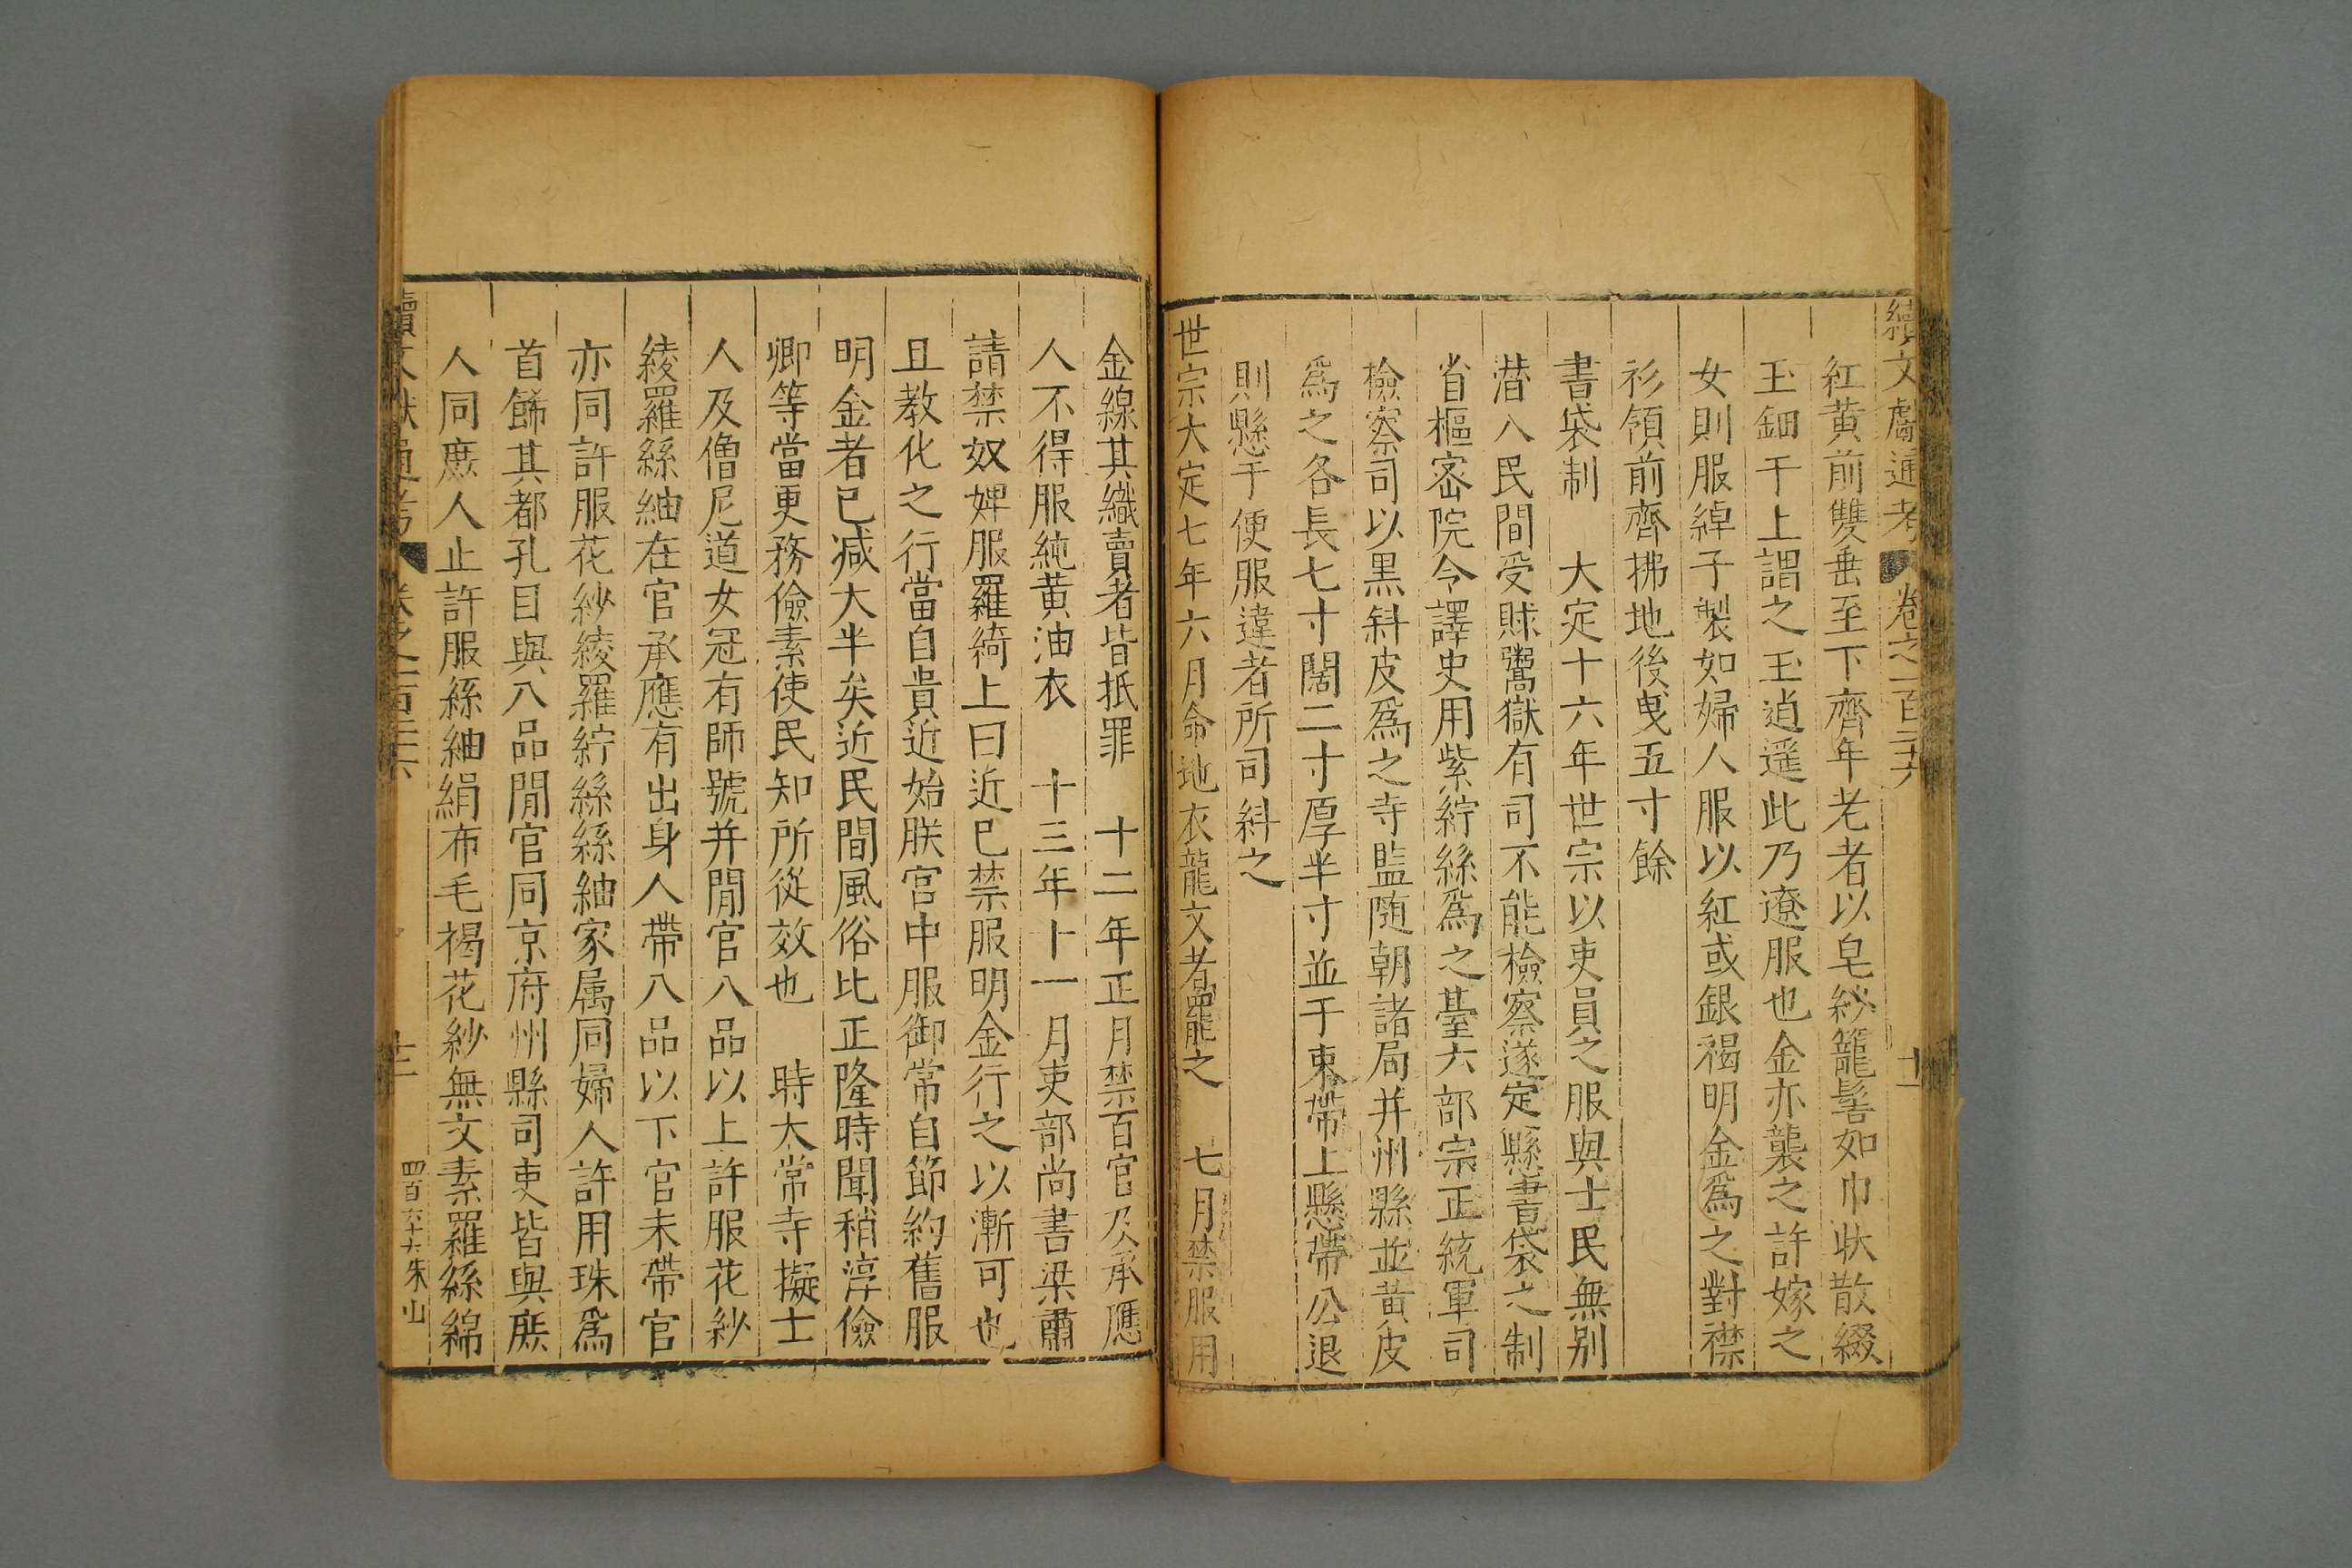 續文獻通考 卷之一百二十六 十一
紅黃前雙垂至下齊年老者以皂紗籠髻如巾狀散綴
玉鈿于上謂之玉逍遥此乃遼服也金亦襲之許嫁之
女則服綽子製如婦人服以紅或銀褐明金爲之對襟
衫領前齊拂地後曳五寸餘
書袋制 大定十六年世宗以吏員之服與士民無别
潜入民間受賕鬻獄有司不能檢察遂定懸書袋之制
省樞宻院令譯史用紫紵絲爲之䑓六部宗正統軍司
檢察司以黒斜皮爲之寺監随朝諸局并州縣並黄皮
爲之各長七寸闊二寸厚半寸並于束帶上懸帶公退
則懸于便服違者所司糾之
世宗大定七年六月命地衣龍文者罷之 七月禁服用
金線其織賣者皆抵罪 十二年正月禁百官及承應
人不得服純黄油衣 十三年十一月吏部尚書梁肅
請禁奴婢服羅綺上曰近已禁服明金行之以漸可也
且教化之行當自貴近始朕宫中服御常自節約舊服
明金者已减大半矣近民間風俗比正隆時聞稍淳儉
卿等當更務儉素使民知所從效也 時太常寺擬士
人及僧尼道女冠有師號并閒官八品以上許服花紗
綾羅絲紬在官承應有出身人帶八品以下官未帶官
亦同許服花紗綾羅紵絲絲紬家属同婦人許用珠爲
首餙其都孔目與八品閒官同京府州縣司吏皆與庶
人同庶人止許服絲紬絹布毛褐花紗無文素羅絲綿
續文獻通考 卷之一百二十六 十二 四百六十九朱山